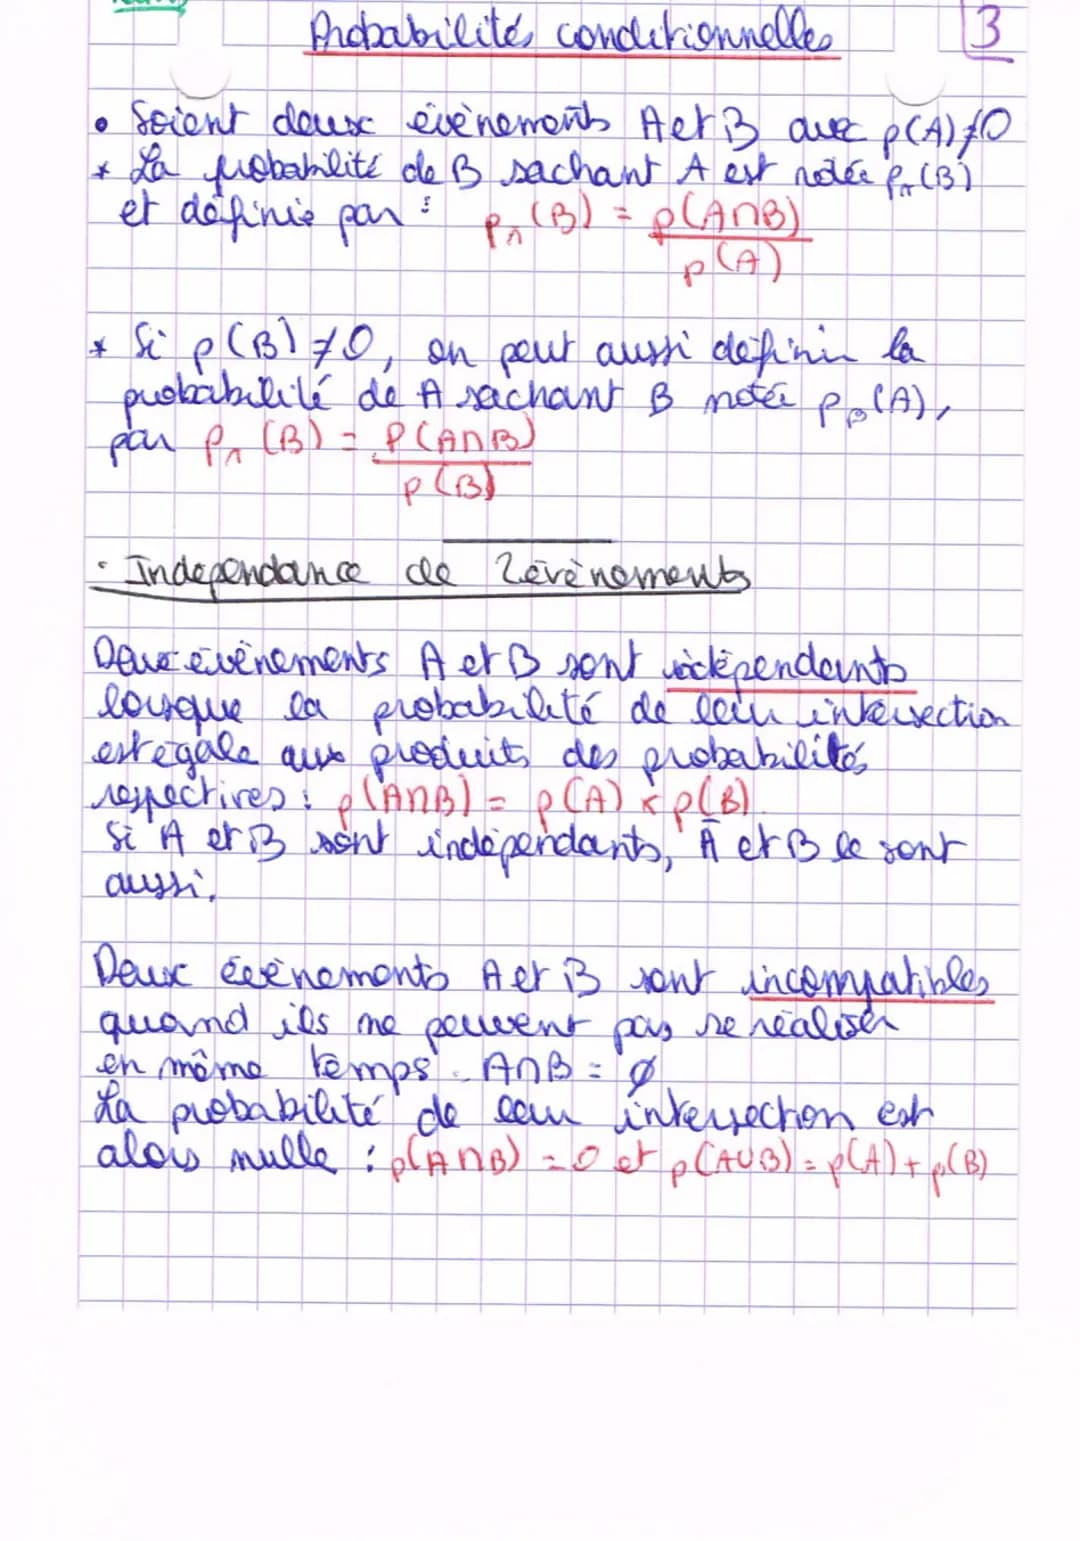 Probabilités conditionnelles
3
• Soient deux évènements A et B avec p(A)≠0
* La probabilité de B sachant A est notée p_A(B)
et définie par : p_A(B) = p(A∩B)
p(A)
* Si p(B)≠0, on peut aussi définir la
probabilité de A sachant B notée p_B(A),
par p_A(B) = P(A∩B)
p(B)
• Indépendance de 2 évènements
Deux évènements A et B sont indépendants
lorsque la probabilité de leur intersection
est égale aux produits des probabilités
respectives : p(A∩B) = p(A) × p(B)
Si A et B sont indépendants, Ā et B le sont
aussi.
Deux évènements A et B sont incompatibles
quand ils ne peuvent pas se réaliser
en même temps. A∩B = ∅
La probabilité de leur intersection est
alors nulle : p(A∩B) = 0 et p(A∪B) = p(A) + p(B)